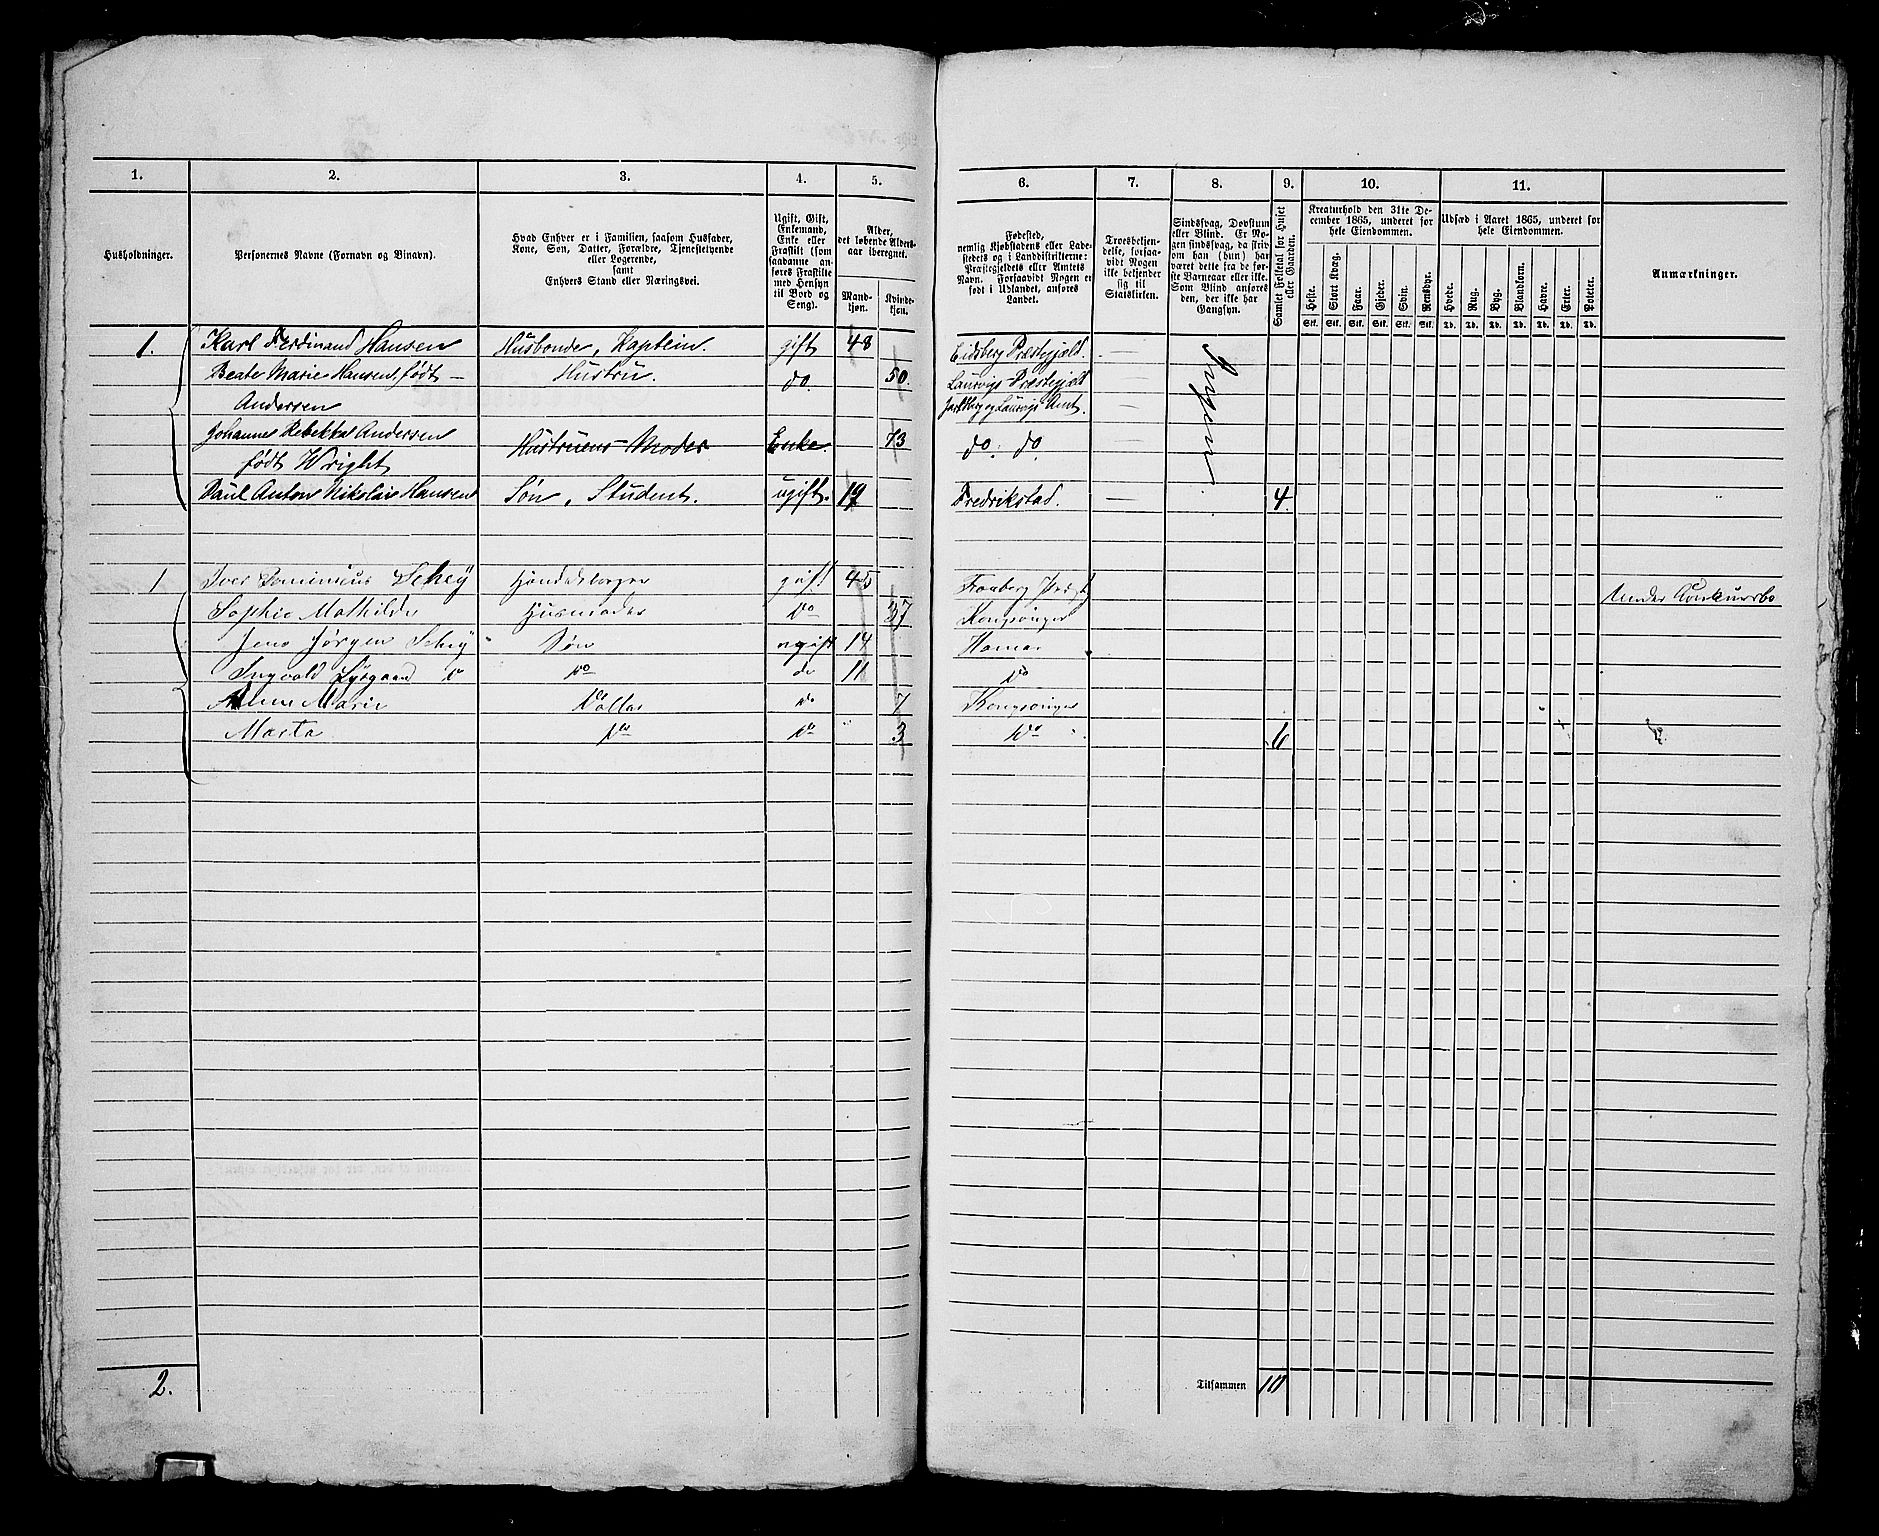 1. 2. 3. 4. 5. 6. 7. 8. 9. 10. 11.
Husholdninger.
Personernes Navne (Fornavn og Binavn).
Hvad Enhver er i Familien, saasom Husfader,
Kone, Søn, Datter, Forældre, Tjenestetyende
eller Logerende,
samt
Enhvers Stand eller Næringsvei.
Ugift, Gift,
Enkemand,
Enke eller
Fraskilt (som
saadanne an-
føres Fraskilte
med Hensyn
til Bord og
Seng).
Alder,
det løbende Alders-
aar iberegnet.
Mand-
kjøn.
Kvinde-
kjøn.
Fødested,
nemlig Kjøbstadens eller Lade-
stedets og i Landdistrikterne:
Præstegjeldets eller Amtets
Navn. Forsaavidt Nogen er
født i Udlandet, anføres
Landet.
Troesbekjen-
delse, forsaa-
vidt Nogen
ikke bekjender
sig til
Statskirken.
Sindssvag, Døvstum
eller Blind. Er No-
gen sindssvag, da skriv
om han (hun) har
været dette fra de før-
ste Barneaar eller ikke.
Som Blind anføres
den, der ikke har
Gangsyn.
Samlet Folketal for Huset
eller Gaarden.
Kreaturhold den 31te De-
cember 1865, underet for
hele Eiendommen.
Heste. Stort Kvæg. Faar. Gjeder. Svin. Rensdyr.
Stk. Stk. Stk. Stk. Stk. Stk.
Udsæd i Aaret 1865, underet for
hele Eiendommen.
Hvede. Rug. Byg. Blandkorn. Havre. Erter. Poteter.
Td. Td. Td. Td. Td. Td. Td.
Anmærkninger.
1. Karl Ferdinand Hansen Husbonde, Kaptein. gift 48 Eidsberg Præstegjæld. — Ingen
Beate Marie Hansen, født — Hustru. do. 50. Laurvigs Præstegjæld —
Andersen Jarlsberg og Laurvigs Amt. —
Johanne Rebekka Andersen Hustruens Moder Enke. 73 do: do.
født Wright
Paul Anton Nikolai Hansen Søn, Student. ugift. 19 Fredrikstad. — 4.
1 Iver Dominicus Schey gift 45 Faaberg Under Konkursbo
Sophie Mathilde Husmoder Do 37 Kongsvinger
Jens Jørgen Schey Søn ugift 14 Hamar
Ingvald Lysgaard Do do 11 Do
Anne Marie Datter Do 7 Kongsvinger
Marta Do Do 3 Do 6
2. Tilsammen 10